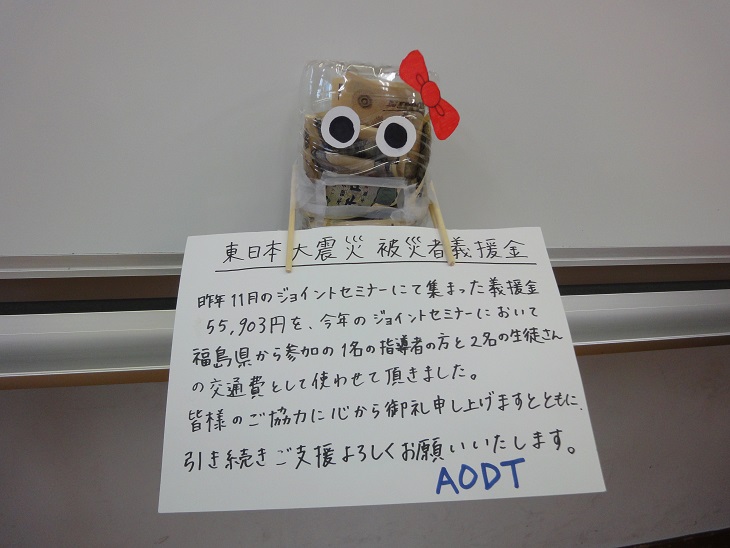 東日本大震災 被災者義援金
昨年11月のジョイントセミナーにて集まった義援金
55,903円を、今年のジョイントセミナーにおいて
福島県から参加の1名の指導者の方と2名の生徒さん
の交通費として使わせて頂きました。
皆様のご協力に心から御礼申し上げますとともに、
引き続きご支援よろしくお願いいたします。
AODT